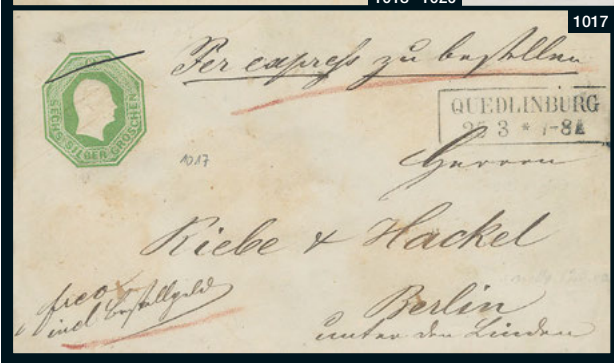 1017
Per express zu bestellen
SECHS SILBER GROSCHEN
QUEDLINBURG
25 3 * 7-8
1017
Herren
Riebe & Hackel
Berlin
unter den Linden
frco
incl. Bestellgeld